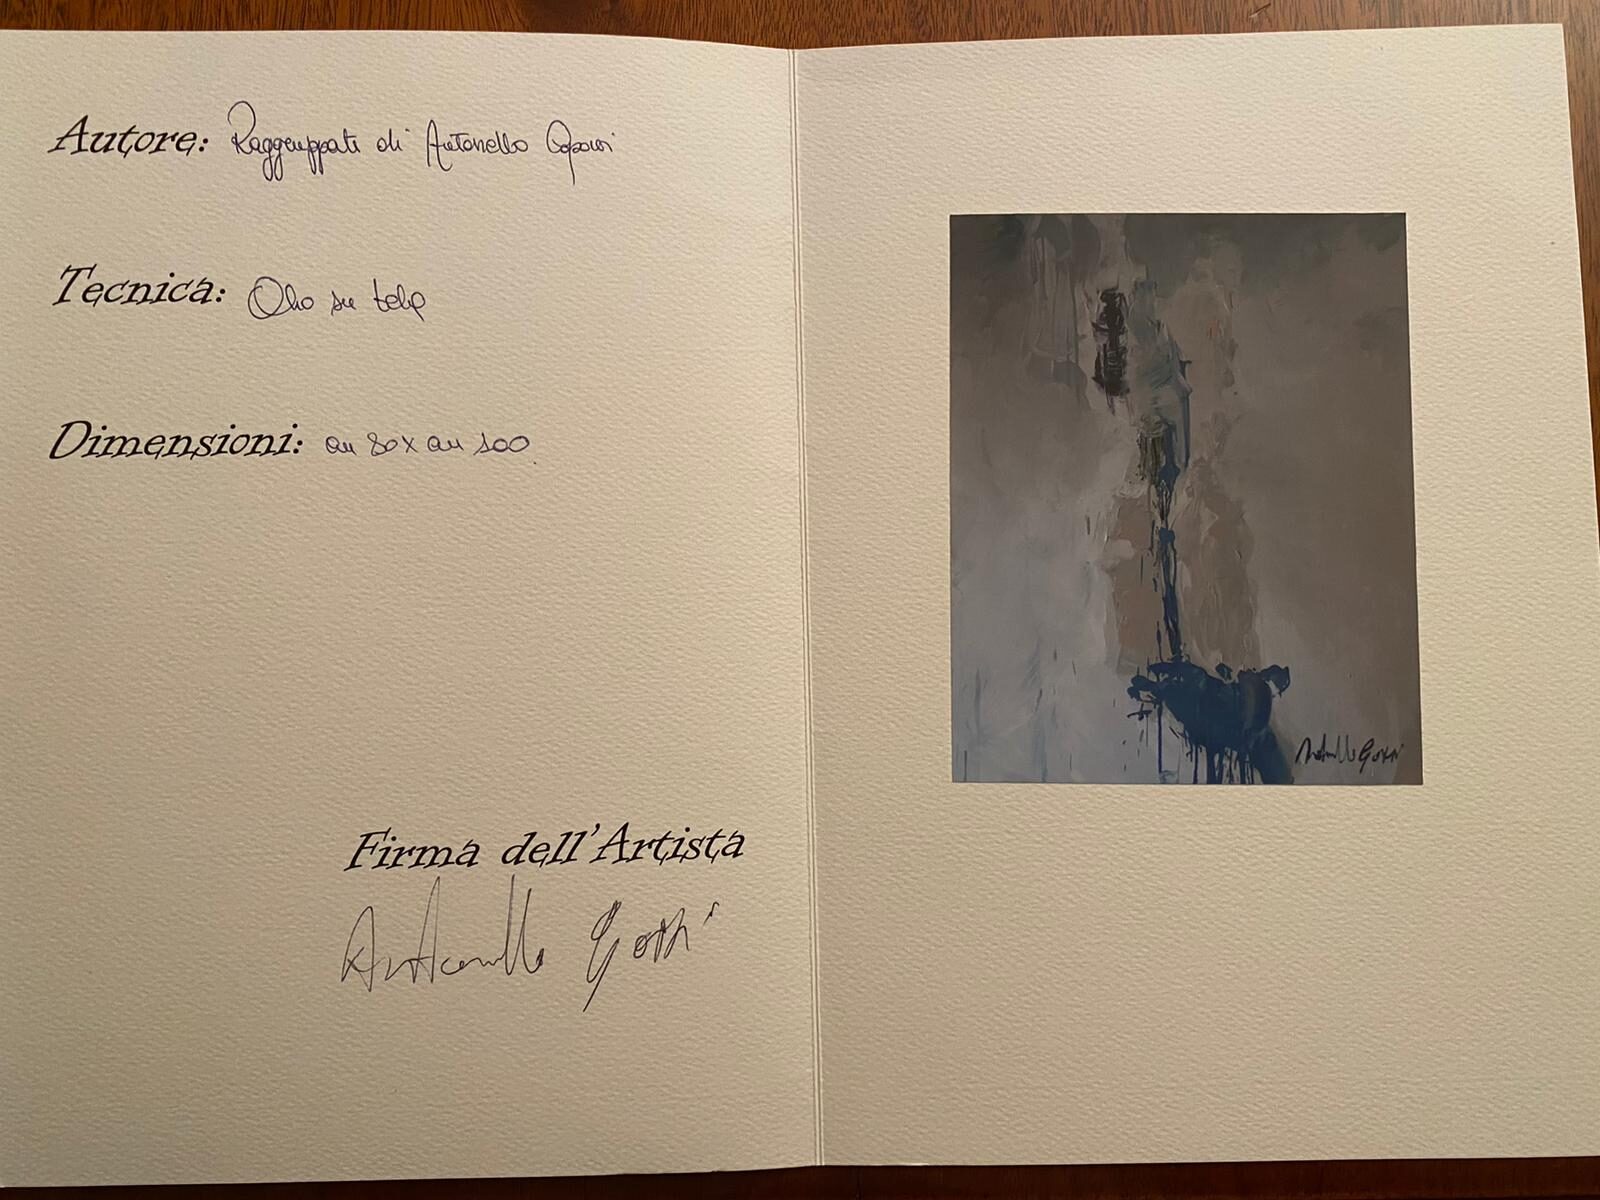 Autore: Raggruppati di Antonello
Tecnica: Olio su tela
Dimensioni: cm 80 x cm 100
Firma dell'Artista
Antonello